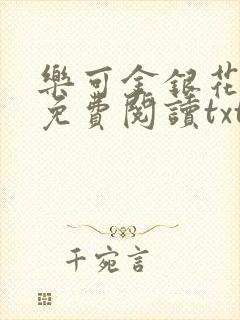 樂可金銀花
免費閱讀txt
千宛言